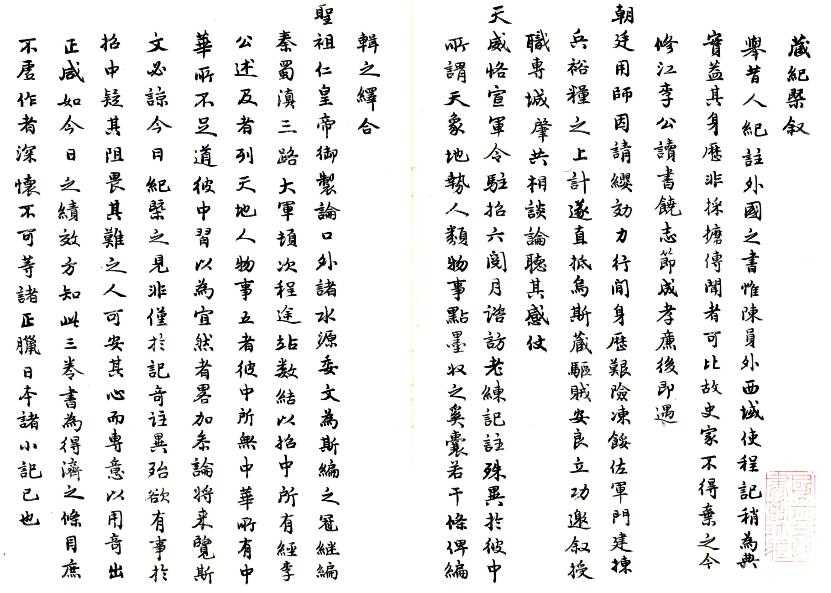 藏紀槩叙
舉昔人紀註外國之書惟陳員外西域使程記稍為典
實益其身歷非採摭傳聞者可比故史家不得棄之今
修江李公讀書饒志節成孝廉後即遇
朝廷用師因請纓効力行間身歷艱險凍餒佐軍門建揀
兵裕糧之上計遂直抵烏斯藏驅賊安良立功邀叙授
職專城肇共相談論聽其感仗
天威恪宣軍令駐招六閱月諮訪老練記註殊異於彼中
所謂天象地勢人類物事點墨奴之奚囊若干條俾編
輯之繹合
聖祖仁皇帝御製論口外諸水源委文為斯編之冠継編
秦蜀滇三路大軍頓次程途站数結以招中所有經李
公述及者列天地人物事五者彼中所無中華所有中
華所不足道彼中習以為宜然者畧加条論将来覽斯
文必諒今日紀槩之見非僅於記奇註異殆欲有事於
招中疑其阻畏其難之人可安其心而專意以用奇出
正咸如今日之績效方知此三巻書為得濟之條目庶
不虚作者深懷不可等諸正臘日本諸小記已也